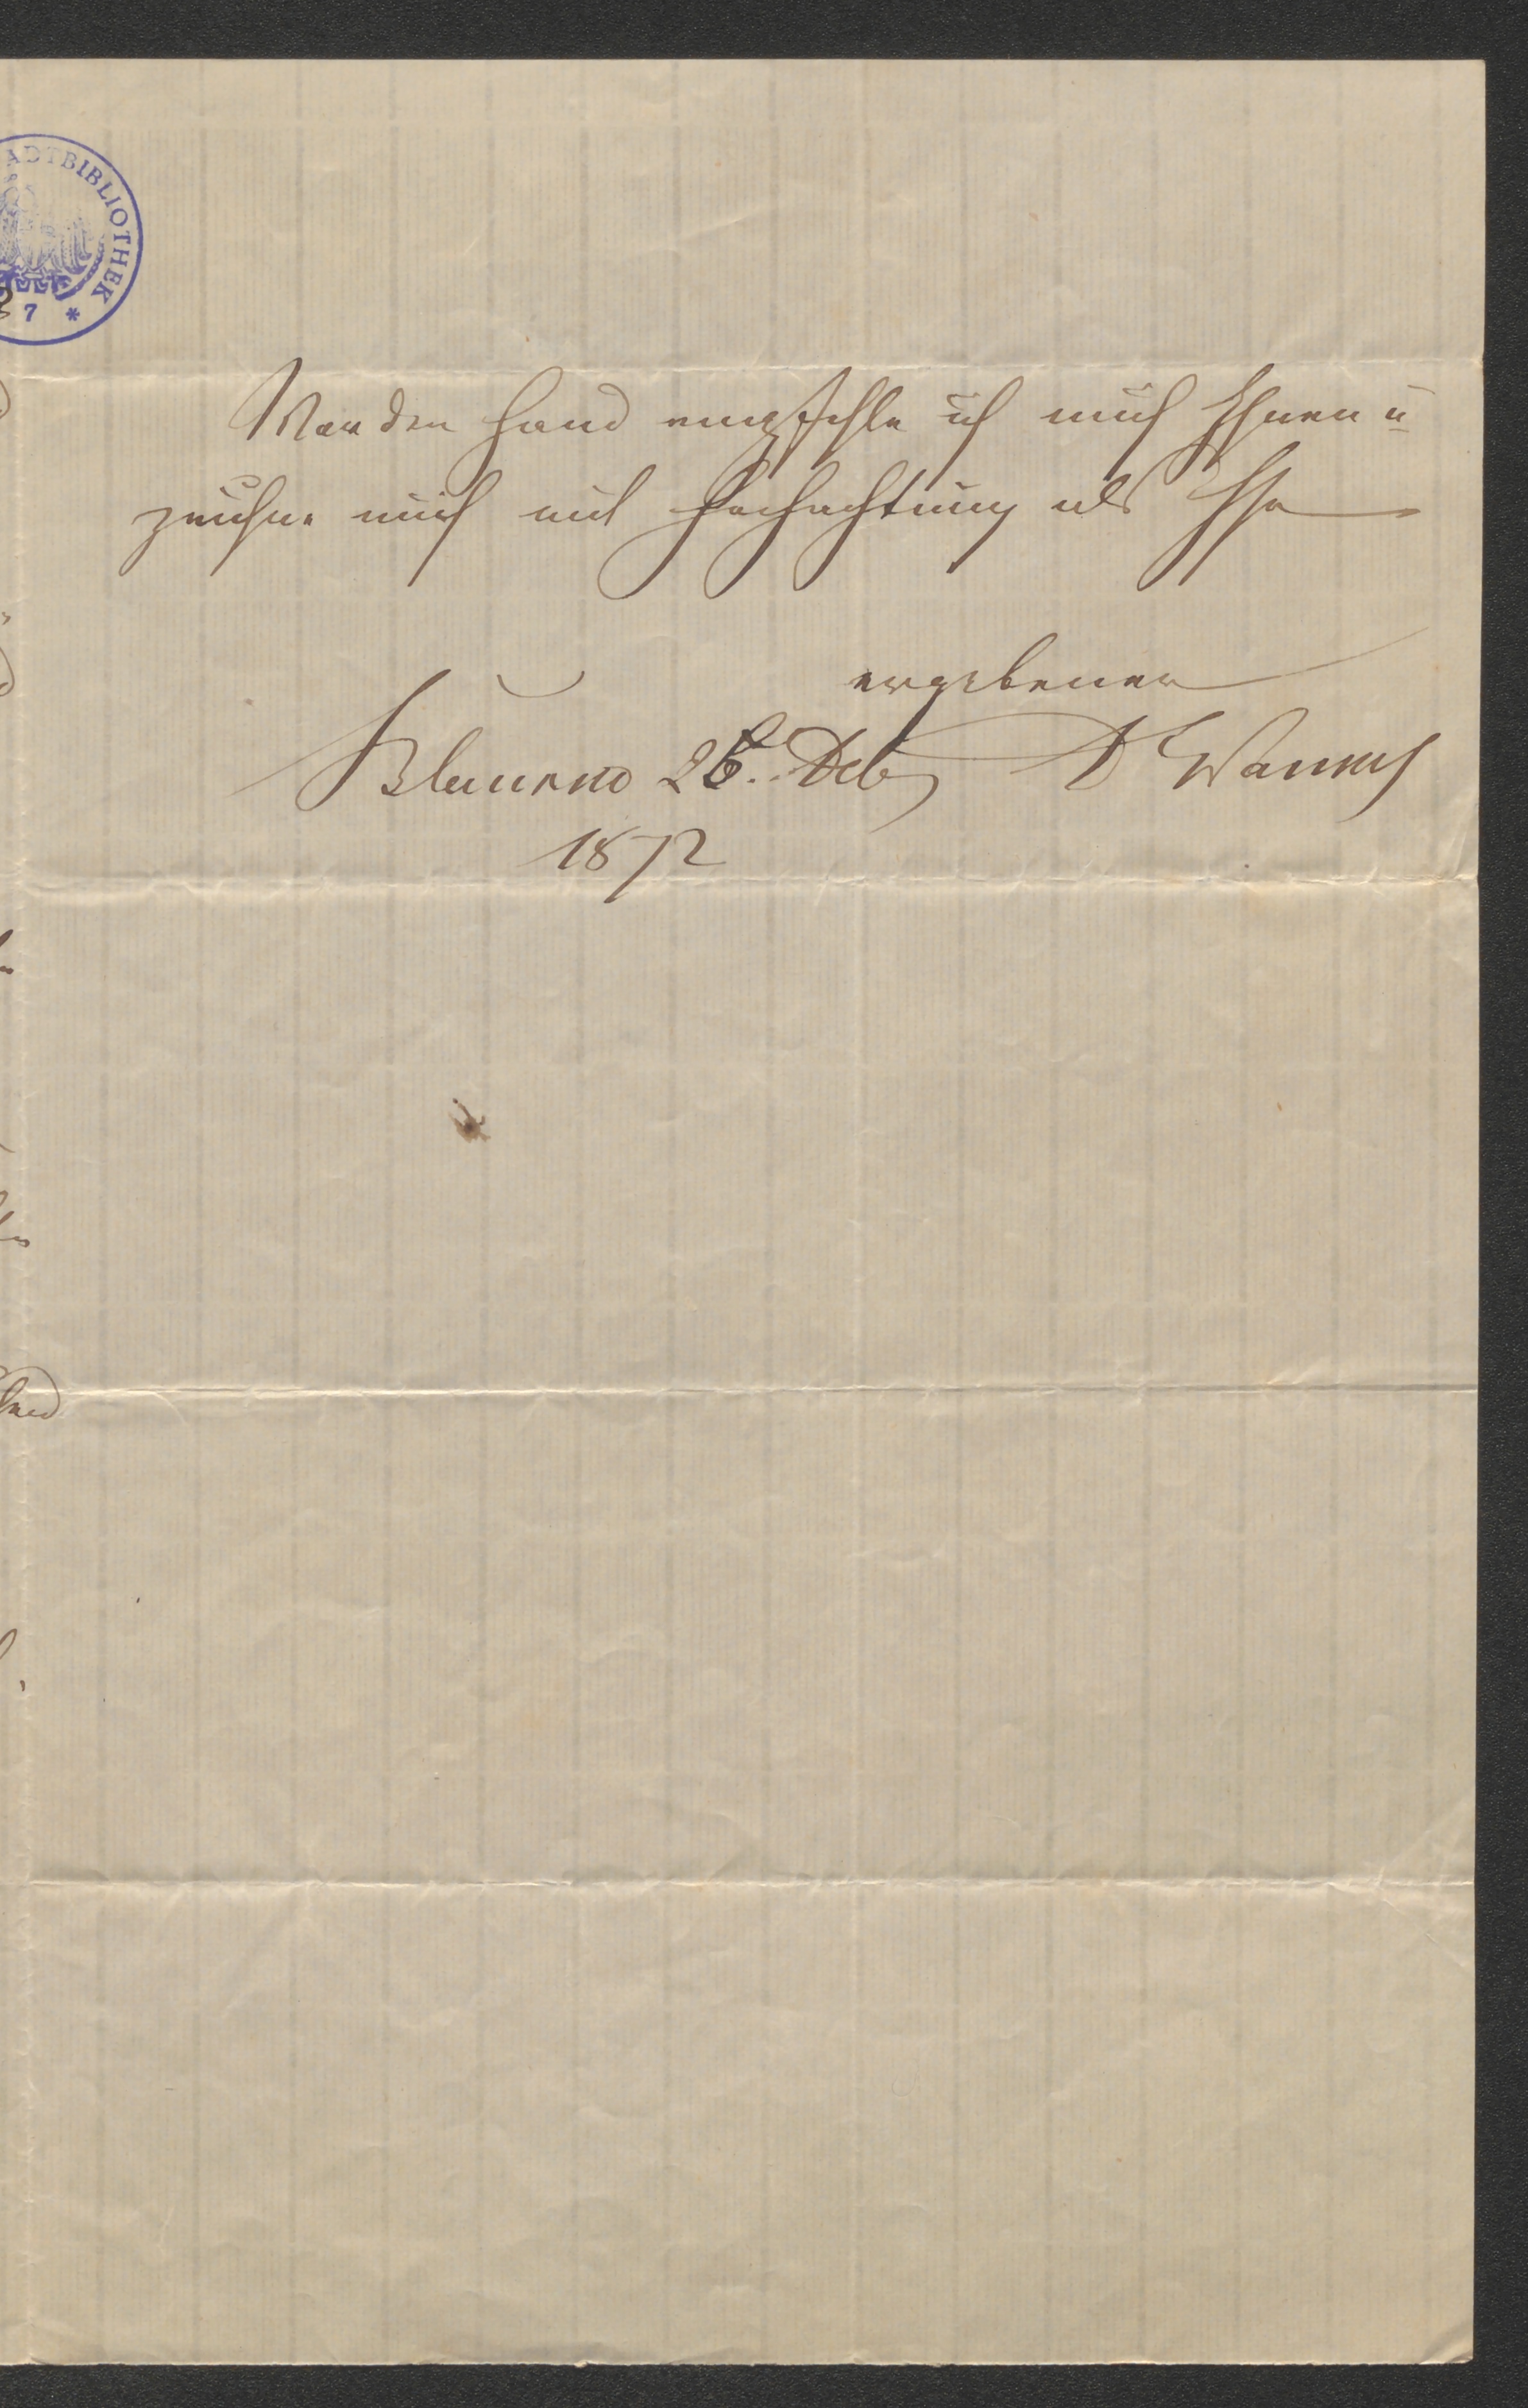 ADTBIBLIOTHEK
7 *
Vor der Hand empfehle ich mich Ihnen u
zeichne mich mit Hochachtung als Ihr
ergebener
26. Dcb Dr Wankel
1872